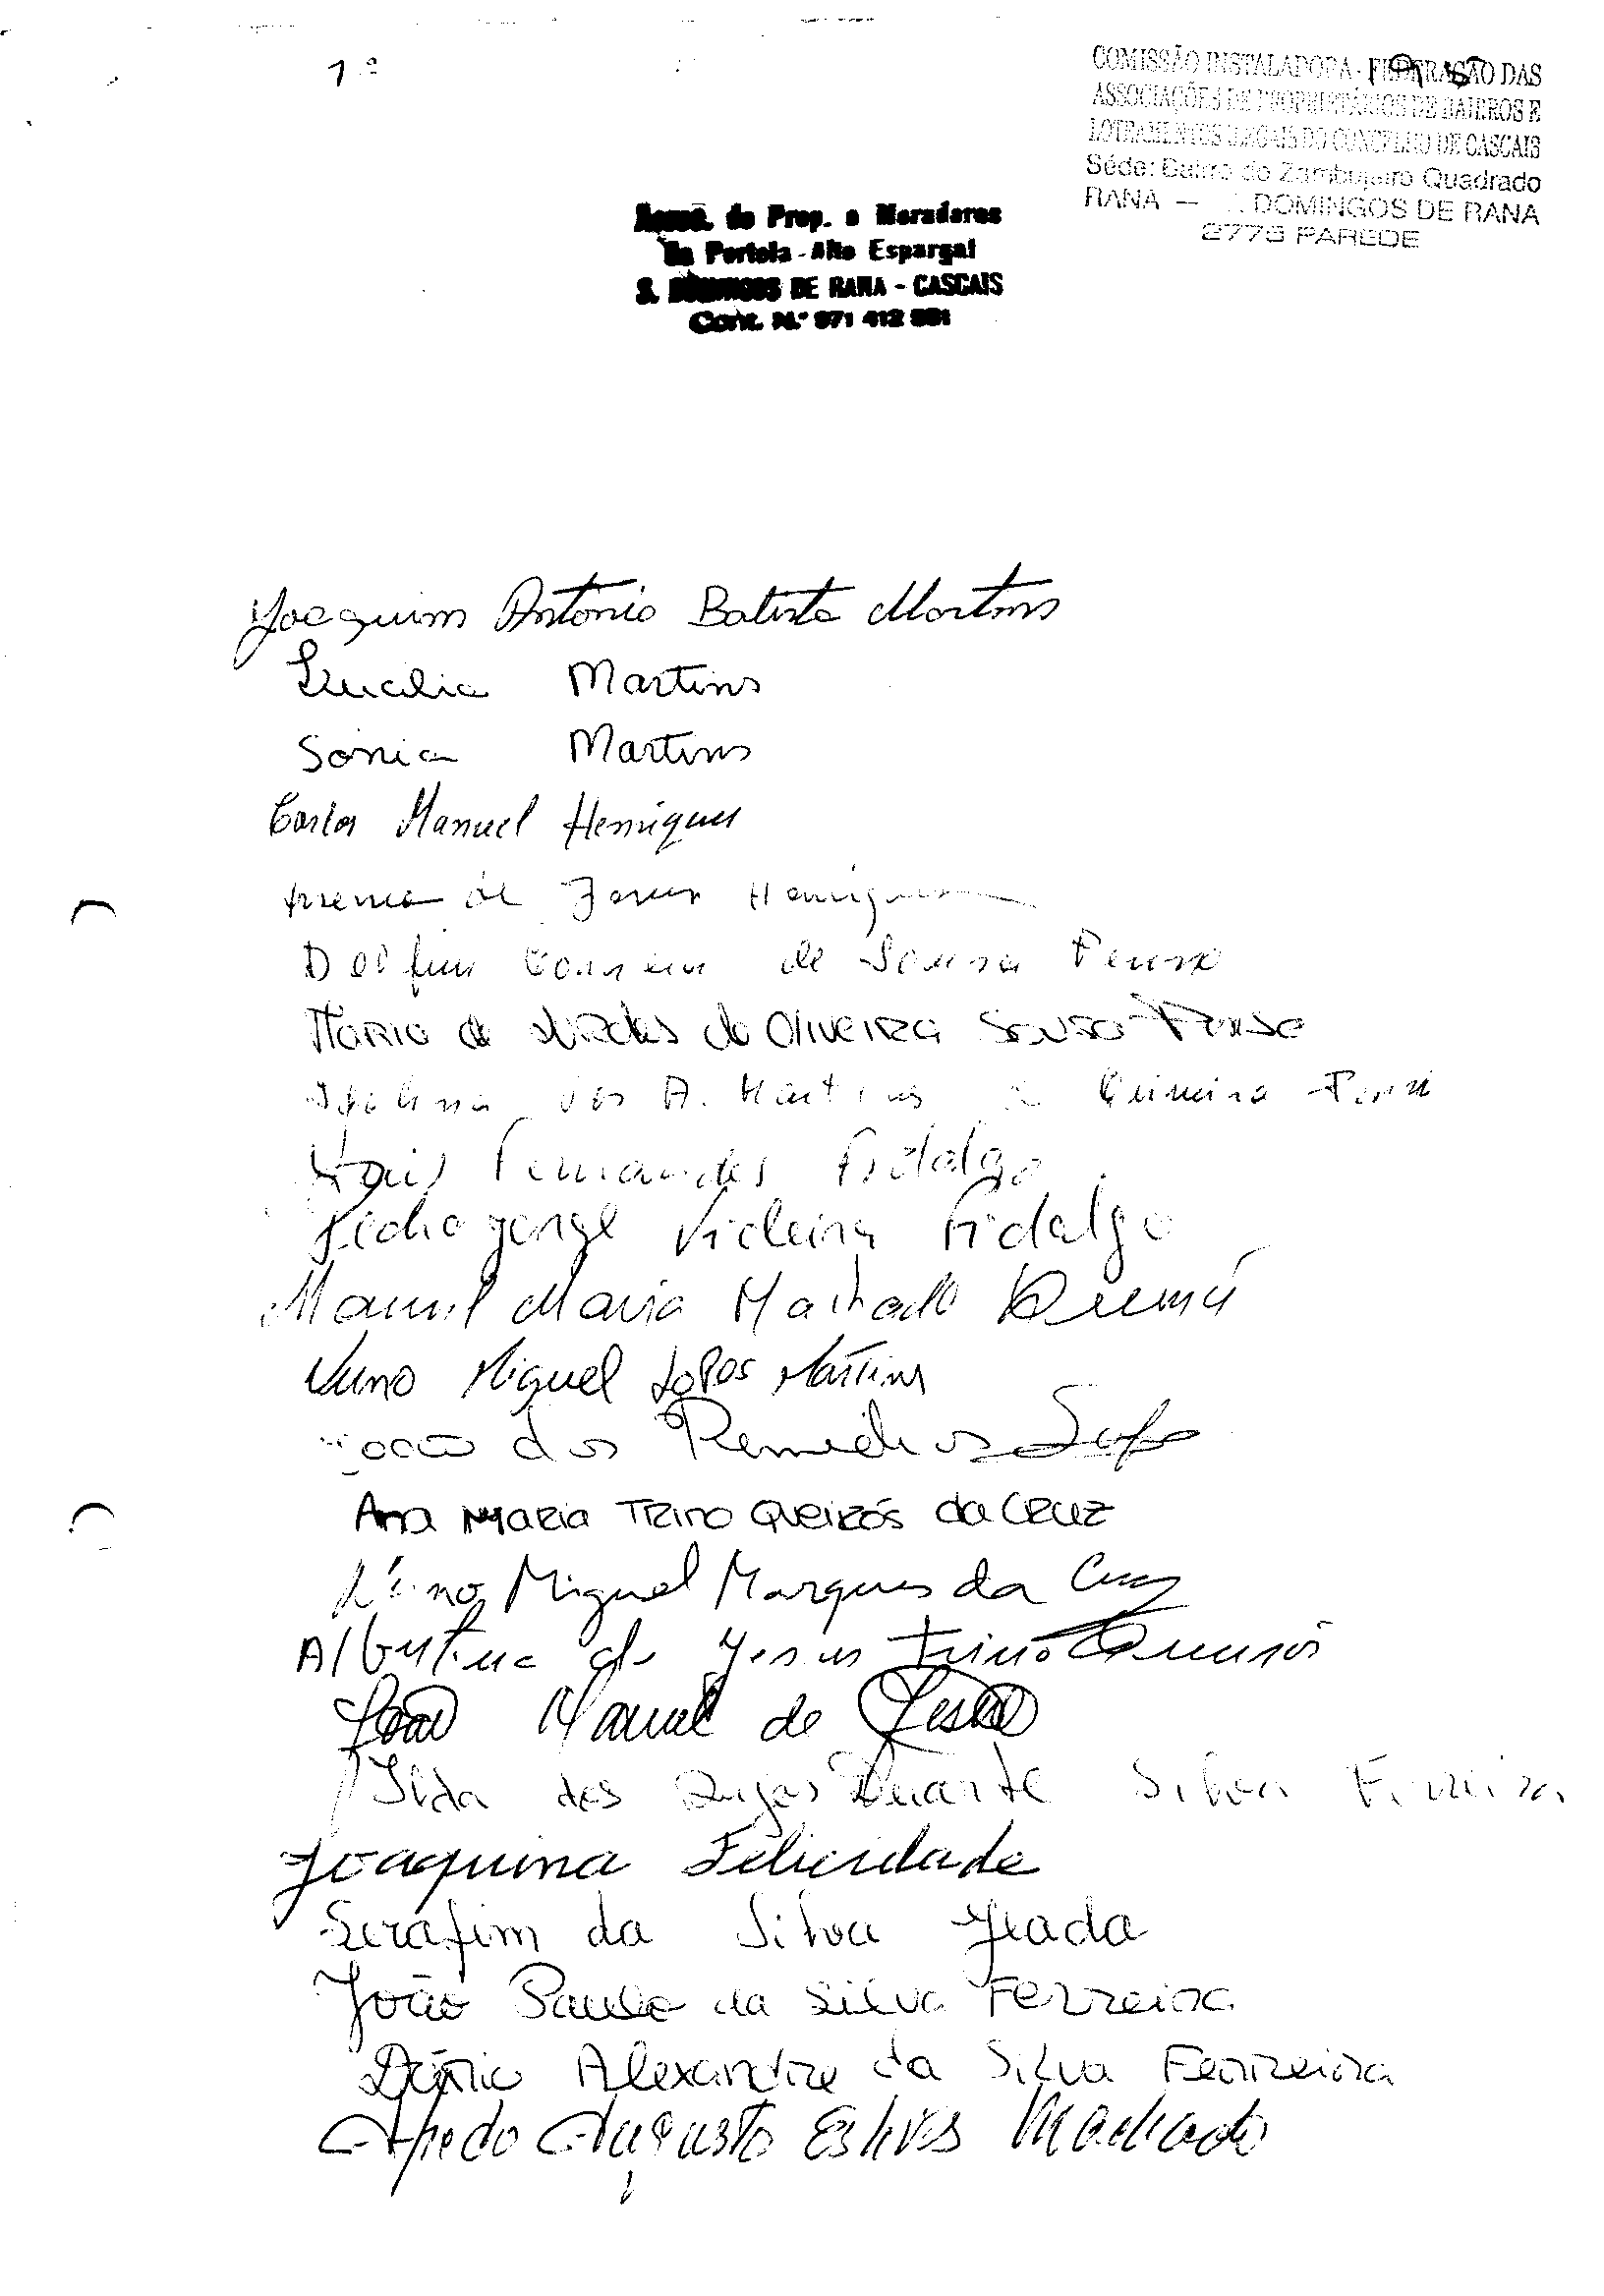 1º
COMISSÃO INSTALADORA - FEDERAÇÃO DAS
ASSOCIAÇÕES DE PROPRIETÁRIOS DE BAIRROS E
LOTEAMENTOS ILEGAIS DO CONCELHO DE CASCAIS
Séde: Bairro do Zambujeiro Quadrado
RANA — DOMINGOS DE RANA
2775 PAREDE
Assoc. de Prop. e Moradores
Da Portela - Alto Espargal
S. DOMINGOS DE RANA - CASCAIS
Cont. N.º 971 412
Joaquim António Batista Martins
Lucilia Martins
Sonia Martins
Carlos Manuel Henriques
de Jesus Henriques
Delfim de Sousa
Maria de Lurdes de Oliveira Sousa
dos A. Martins
Luis Fernandes Fidalgo
Pedro Jorge Videira Fidalgo
Manuel Maria Machado
Nuno Miguel Lopes Martins
João dos Remedios
Ana Maria Trino Queirós da Cruz
Nuno Miguel Marques da Cruz
Albertina de Jesus Trino
João Manuel de
Ilda dos Anjos Duarte Silva Ferreira
Joaquina Felicidade
Serafim da Silva
João Paulo da Silva Ferreira
Dário Alexandre da Silva Ferreira
Alfredo Augusto Esteves Machado